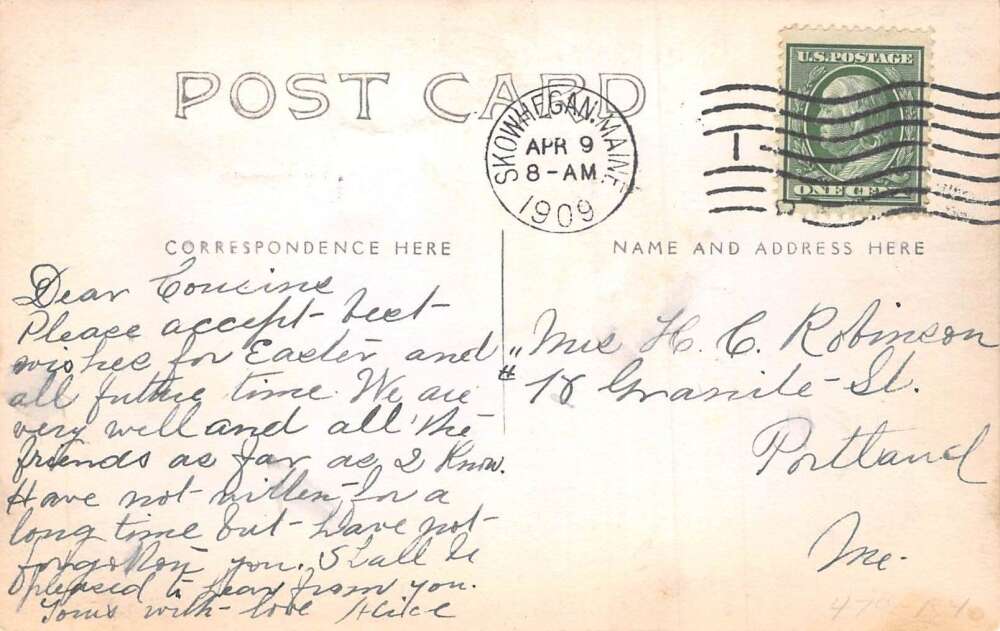 POST CARD
SKOWHEGAN, MAINE
APR 9
8-AM
1909
1
U.S. POSTAGE
ONE CENT
CORRESPONDENCE HERE
NAME AND ADDRESS HERE
Dear Cousins
Please accept best
wishes for Easter and
all future time. We are
very well and all the
friends as far as I know.
Have not written for a
long time but have not
forgotten you. Shall be
pleased to hear from you.
Yours with love Alice
Mrs H. C. Robinson
# 18 Granite St.
Portland
Me.